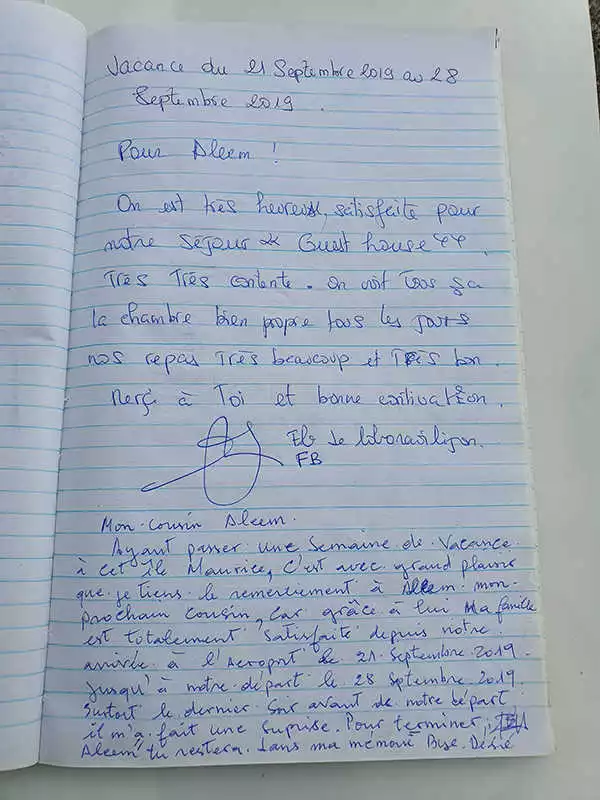 Vacance du 21 Septembre 2019 au 28
Septembre 2019.
Pour Aleem !
On est tres heureux, satisfaite pour
notre séjour Guest house
Très Très contente. On voit Tous ça
la chambre bien propre tous les jours
nos repas Très beaucoup et Très bon.
Merçi à Toi et bonne
FB
Mon Cousin Aleem.
Ayant passer une Semaine de Vacance
à cet île Maurice, C'est avec grand plaisir
que je tiens le remerciement à Aleem mon
prochain cousin, car grâce à lui Ma famille
est totalement Satisfaite depuis notre
arrivée à l'Aeroport le 21 Septembre 2019
Jusqu'à notre départ le 28 Septembre 2019.
Surtout le dernier Soir avant de notre départ
il m'a fait une Suprise. Pour terminer,
Aleem tu restera dans ma mémoire Bise. Désié